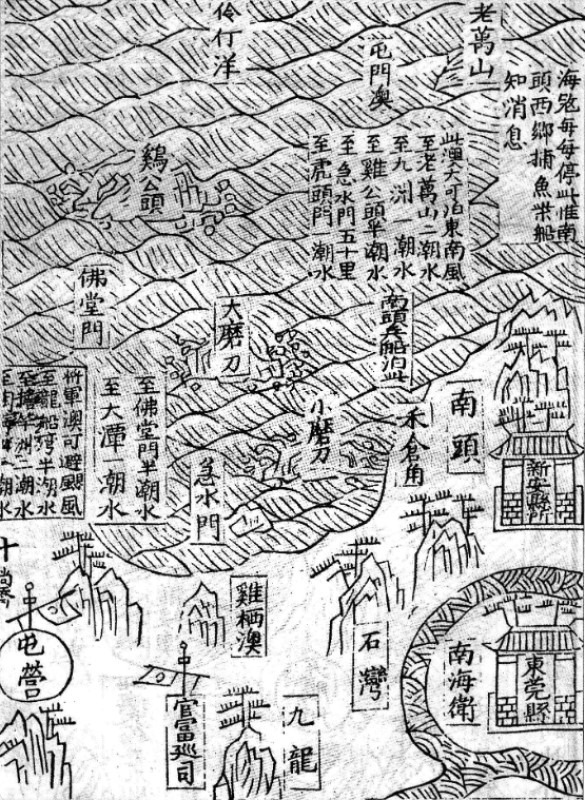 海寇每每停此惟南
頭西鄉捕魚柴船
知消息
老萬山
屯門澳
伶仃洋
此潭大可泊東南風
至老萬山二潮水
至九洲一潮水
至雞公頭半潮水
至急水門五十里
至虎頭門一潮水
鷄公頭
南頭兵船泊此
大磨刀
佛堂門
南頭
禾倉角
小磨刀
急水門
至佛堂門半潮水
至大潭一潮水
將軍澳可避颶風
至龍船灣半潮水
新安縣
東莞縣
南海衛
石灣
雞栖澳
九龍
官富巡司
屯營